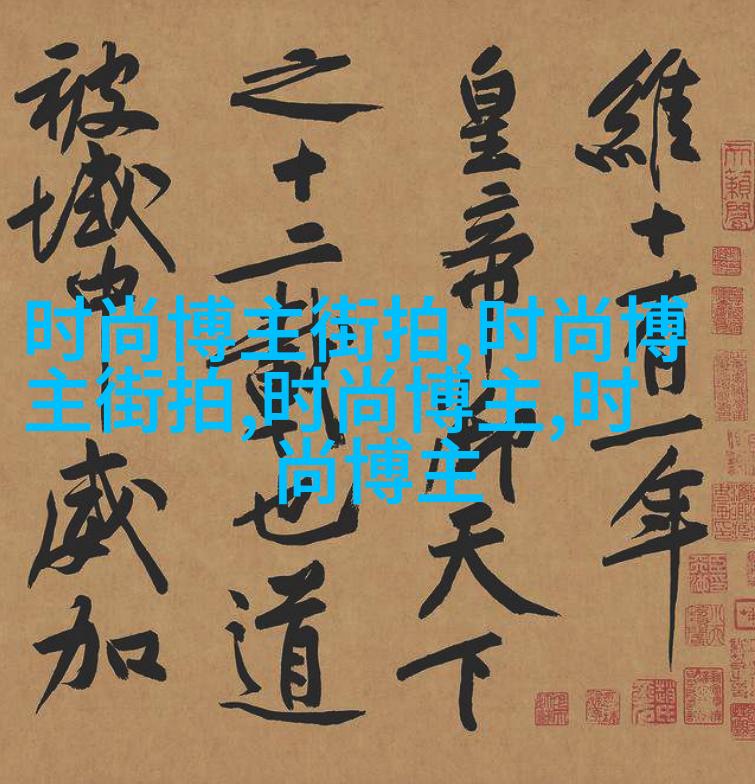 維十有一年
皇帝御天下
之十二載也道
被域中威加
时尚博主街拍,时尚博
主街拍,时尚博主,时
尚博主